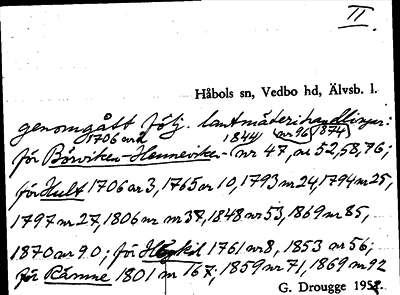 II.
Håbols sn, Vedbo hd, Älvsb. l.
genomgått följ. lantmäterihandlingar:
1706 ar 2 1844 nr 96 1874
för Börviken-Henneviken- nr 47, nr 52, 58, 76;
för Hult 1706 ar 3, 1765 ar 10, 1793 nr 24, 1794 nr 25,
1797 nr 27, 1806 nr 38, 1848 nr 53, 1869 nr 85,
1870 nr 90; för 1761 nr 8, 1853 nr 56;
för Rämne 1801 nr 167, 1859 nr 71, 1869 nr 92
G. Drougge 1958.